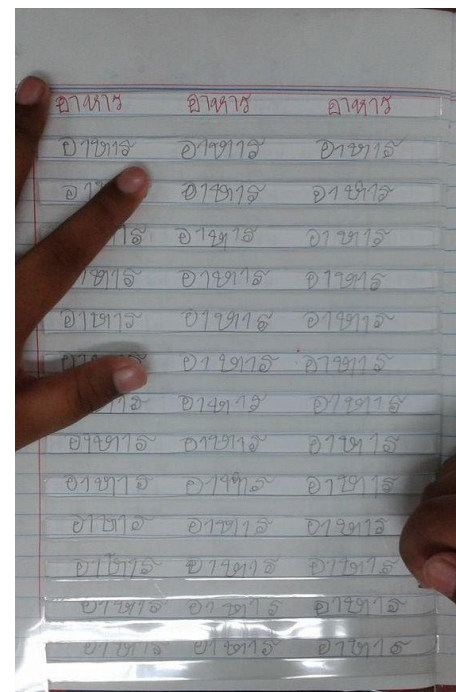 อาหาร อาหาร อาหาร
อาหาร อาหาร อาหาร
อาหาร อาหาร
อาหาร อาหาร
อาหาร อาหาร อาหาร
อาหาร อาหาร อาหาร
อาหาร อาหาร
อาหาร อาหาร
อาหาร อาหาร อาหาร
อาหาร อาหาร อาหาร
อาหาร อาหาร อาหาร
อาหาร อาหาร อาหาร
อาหาร อาหาร อาหาร
อาหาร อาหาร อาหาร